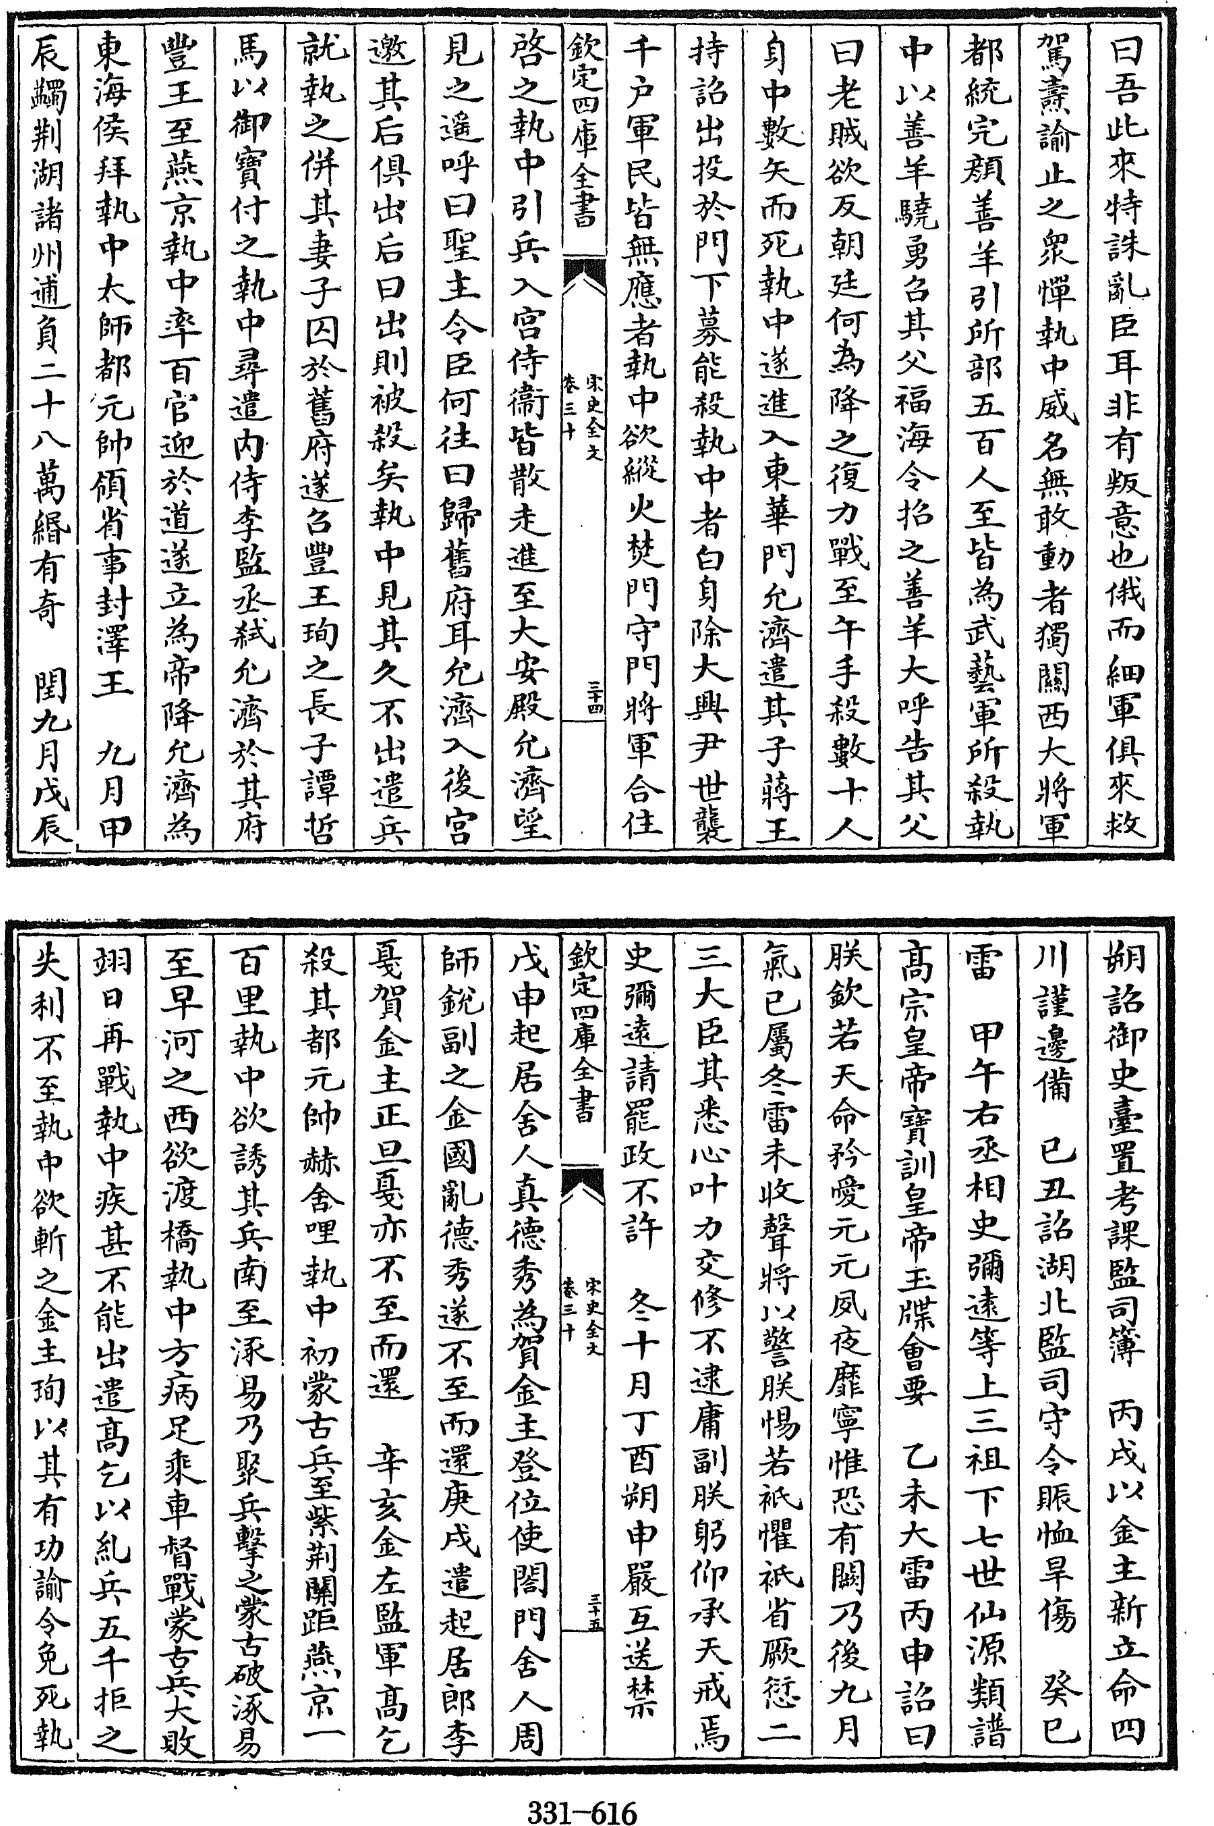 曰吾此來特誅亂臣耳非有叛意也俄而細軍俱來救
駕燾諭止之眾憚執中威名無敢動者獨關西大將軍
都統完顏善羊引所部五百人至皆為武藝軍所殺執
中以善羊驍勇召其父福海令招之善羊大呼告其父
曰老賊欲反朝廷何為降之復力戰至午手殺數十人
身中數矢而死執中遂進入東華門允濟遣其子蔣王
持詔出投於門下募能殺執中者白身除大興尹世襲
千戶軍民皆無應者執中欲縱火焚門守門將軍合住
欽定四庫全書
宋史全文
卷三十
三十四
啓之執中引兵入宮侍衞皆散走進至大安殿允濟望
見之遥呼曰聖主令臣何往曰歸舊府耳允濟入後宮
邀其后俱出后曰出則被殺矣執中見其久不出遣兵
就執之併其妻子囚於舊府遂召豐王珣之長子譚哲
馬以御寶付之執中尋遣内侍李監丞弒允濟於其府
豐王至燕京執中率百官迎於道遂立為帝降允濟為
東海侯拜執中太師都元帥領省事封澤王　九月甲
辰蠲荆湖諸州逋負二十八萬緡有奇　閏九月戊辰
朔詔御史臺置考課監司簿　丙戌以金主新立命四
川謹邊備　己丑詔湖北監司守令賑恤旱傷　癸巳
雷　甲午右丞相史彌遠等上三祖下七世仙源類譜
髙宗皇帝寶訓皇帝玉牒會要　乙未大雷丙申詔曰
朕欽若天命矜愛元元夙夜靡寧惟恐有闕乃後九月
氣已屬冬雷未收聲將以警朕惕若祗懼祇省厥愆二
三大臣其悉心叶力交修不逮庸副朕躬仰承天戒焉
史彌遠請罷政不許　冬十月丁酉朔申嚴互送禁
欽定四庫全書
宋史全文
卷三十
三十五
戊申起居舍人真德秀為賀金主登位使閤門舍人周
師銳副之金國亂德秀遂不至而還庚戌遣起居郎李
戛賀金主正旦戛亦不至而還　辛亥金左監軍髙乞
殺其都元帥赫舍哩執中初蒙古兵至紫荆關距燕京一
百里執中欲誘其兵南至涿易乃聚兵擊之蒙古破涿易
至早河之西欲渡橋執中方病足乘車督戰蒙古兵大敗
翊日再戰執中疾甚不能出遣髙乞以糺兵五千拒之
失利不至執中欲斬之金主珣以其有功諭令免死執
331-616